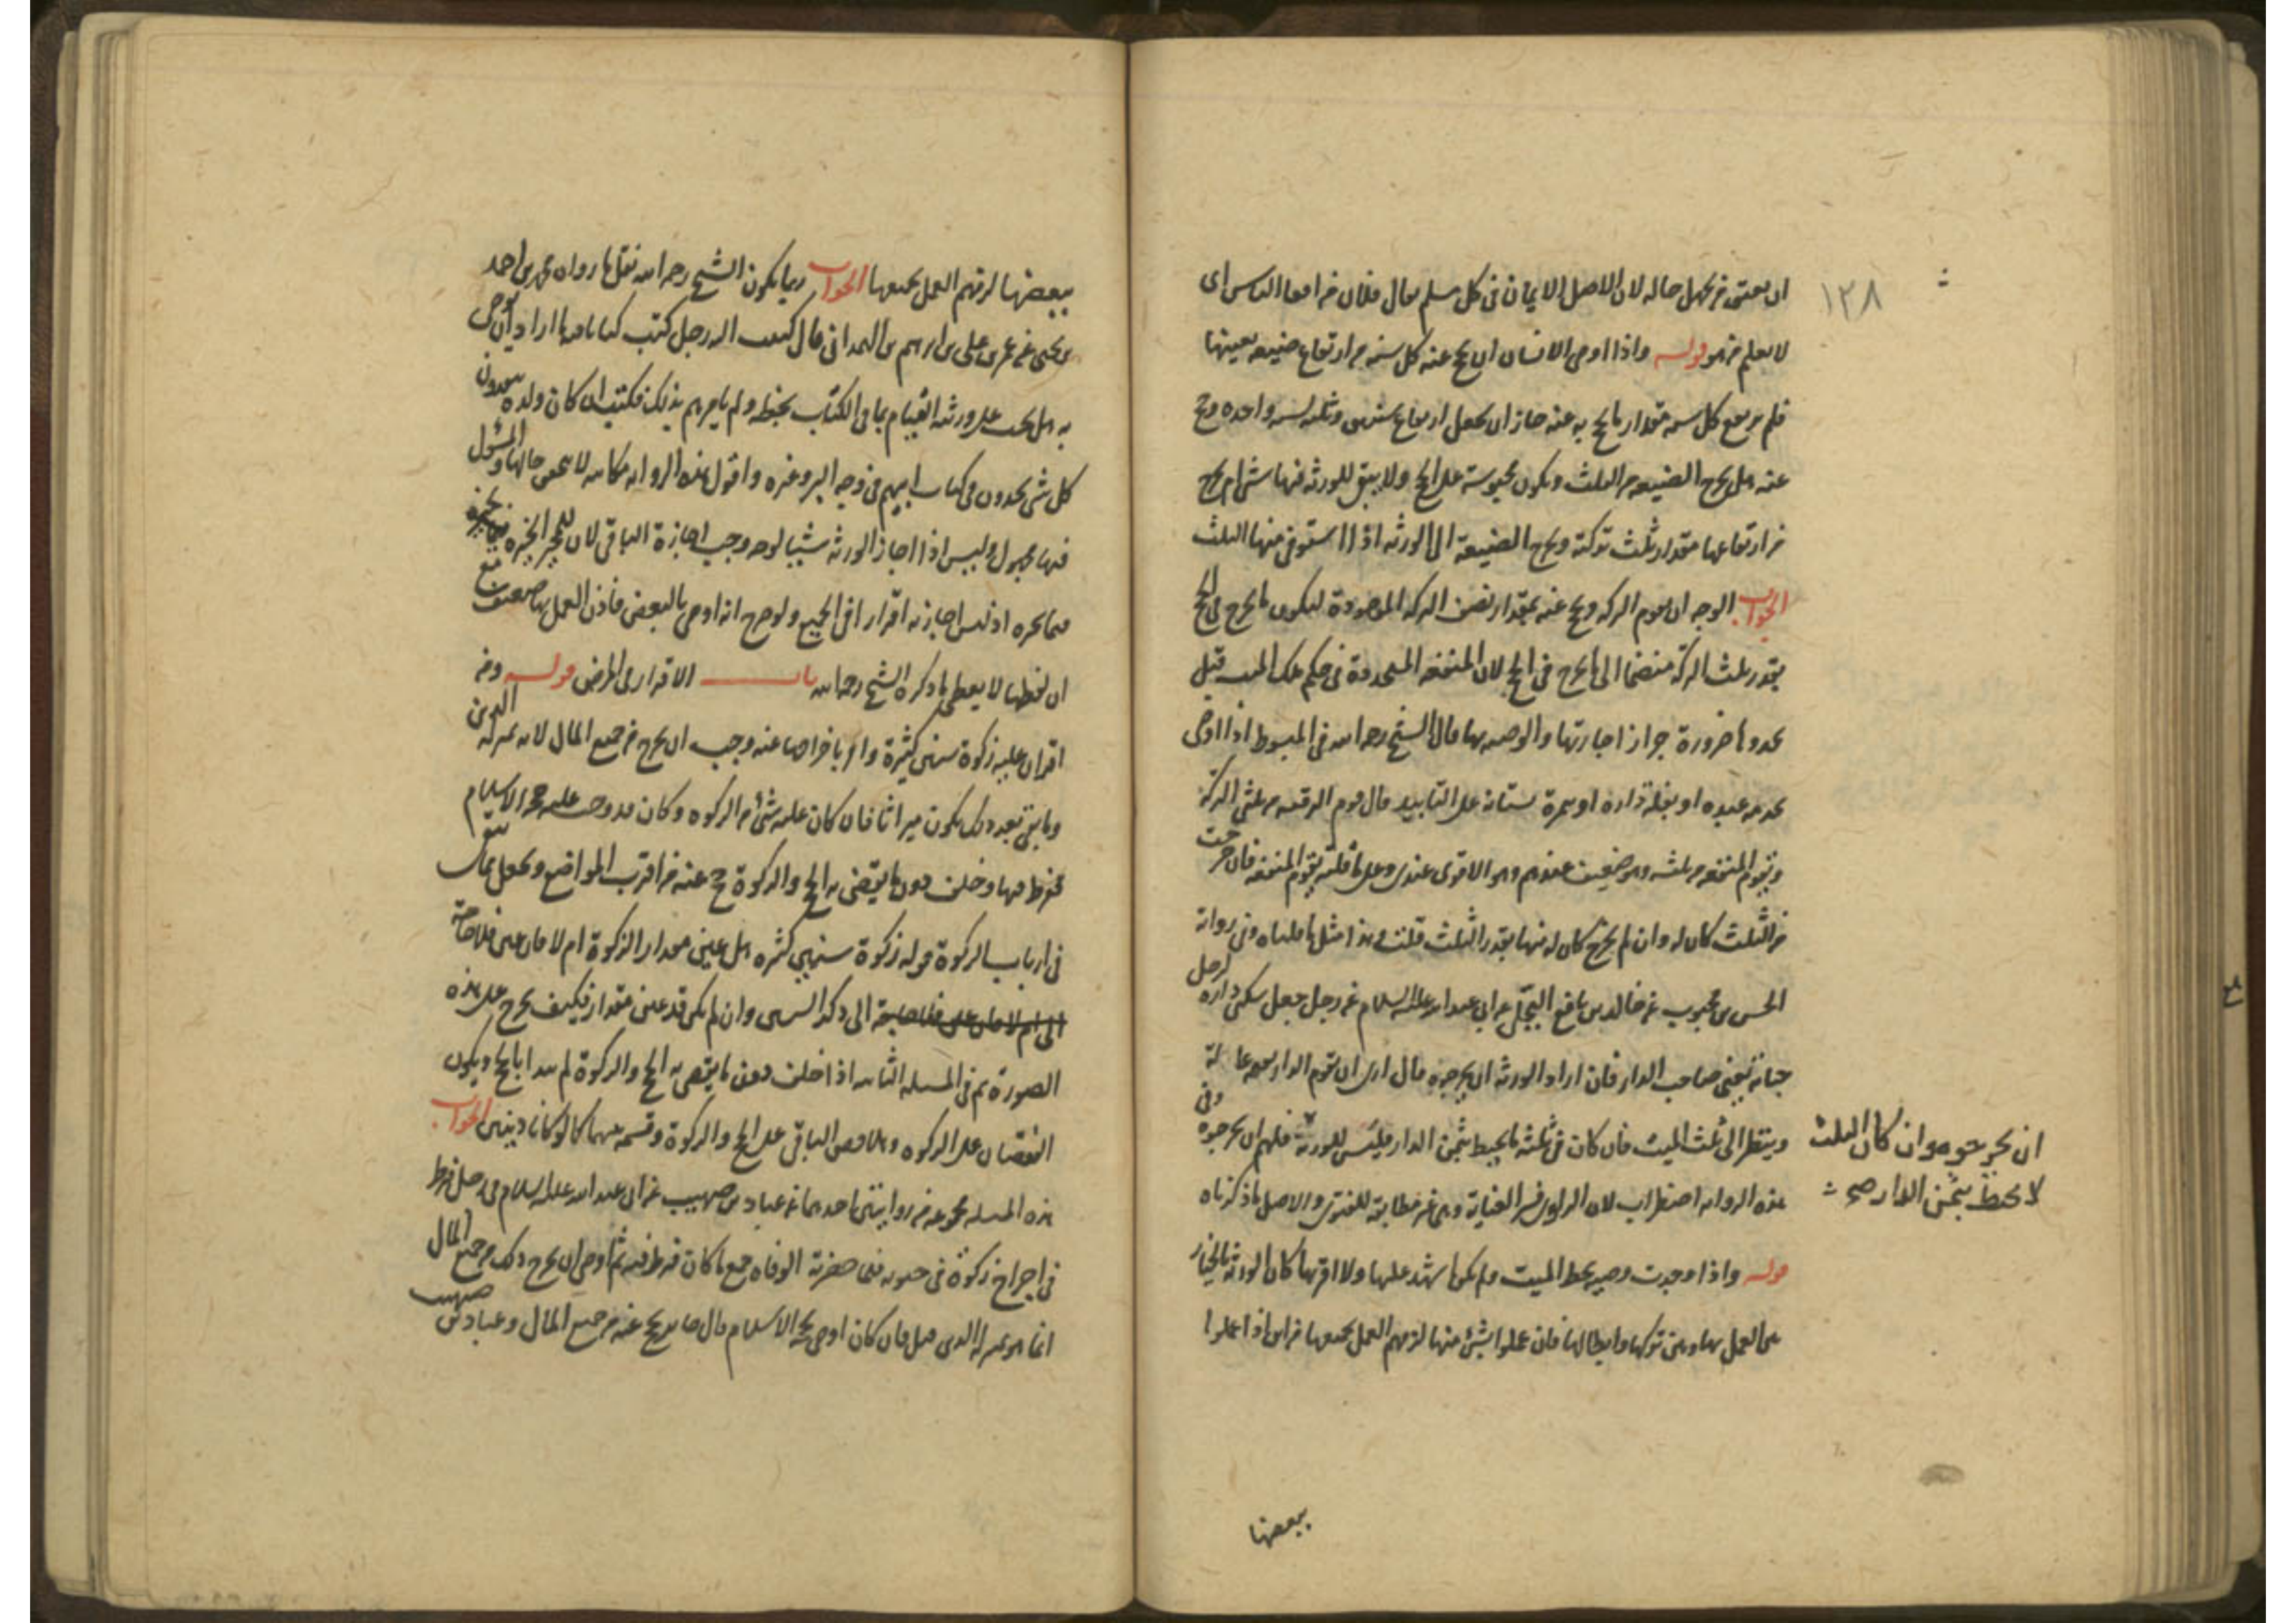 ١٣٨
ان يعتق من يجهل حاله لان الاصل الايمان في كل مسلم يقال فلان من افنا الناس اى
لا يعلم من هو قوله واذا اوصى الانسان ان يحج عنه كل سنه من ارتفاع ضيعه بعينها
فلم يرتفع كل سنه مقدار ما يحج به عنه جاز ان يجعل ارتفاع سنتين وثلثه لسنه واحده وحج
عنه هل يخرج الضيعه من الثلث ويكون محبوسة على الحج ولا يبقى للورثه فيها شئ ام يخرج
من ارتفاعها مقدار ثلث تركته ويخرج الضيعة الى الورثه اذا استوفى منها الثلث
الجواب الوجه ان يقوم التركه ويحج عنه بمقدار نصف التركه الموجودة ليكون ما يخرج في الحج
بقدر ثلث التركة منضما الى ما يخرج في الحج لان المنفعه المتجددة في حكم ملك الميت قبل
تجددها ضرورة جواز اجارتها والوصيه بها قال الشيخ رحمه الله في المبسوط اذا اوصى
بخدمه عبده او بغلة داره او ثمرة بستانه على التابيد قال قوم يقوم الرقبه من ثلثى التركة
ويقوم المنفعه من ثلثه وهو ضعيف عندهم وهو الاقوى عندى وعلى ما قلته يقوم المنفعه فان خرجت
من الثلث كان له وان لم يخرج كان له منها بقدر الثلث قلت وهذا مثل ما قلناه وفي رواية
الحسن بن محبوب عن خالد بن نافع البجلى عن ابي عبد الله عليه السلام عن رجل جعل سكنى داره لرجل
حياته يعنى صاحب الدار فان اراد الورثه ان يخرجوه قال ارى ان تقوم الدار بقيمة عادلة
وينظر الى ثلث الميت فان كان في ثلثه ما يحيط بثمن الدار فليس للورثة فلهم ان يخرجوه وفى
ان يخرجوه وان كان الثلث
لا يحيط بثمن الدار صح
هذه الروايه اضطراب لان الراوى فسر الغياية وهى غير مطابقة للفتوى والاصل ما ذكرناه
قوله واذا وجدت وصيه بخط الميت ولم يكن اشهد عليها ولا اقر بها كان الورثه بالخيار
بين العمل بها وبين تركها وابطالها فان عملوا بشئ منها لزمهم العمل بجميعها من اين اذا عملوا
ببعضها
ببعضها لزمهم العمل بجميعها الجواب ربما يكون الشيخ رحمه الله نقل ما رواه محمد بن احمد
بن يحيى عن عمر بن على بن ابراهيم بن الهمداني قال كتبت اليه رجل كتب كتابا فيه ما اراد ان يوصى
به هل يجب على ورثته القيام بما في الكتاب بخطه ولم يامرهم بذلك فكتب ان كان ولده ينفذون
كل شئ يجدون في كتاب ابيهم في وجه البر وغيره واقول هذه الروايه مكاتبه لا تحقق حالها والمسئول
فيها مجهول وليس اذا اجاز الورثه شيئا لوجه وجب اجازة الباقى لان للمجيز الخيره فيما يجيزه
فيما يجيزه اذ ليس اجازته اقرارا في الجميع ولو صرح انه اوصى بالبعض فاذن العمل بها ضعيف مع
ان لفظها لا يعطى ما ذكره الشيخ رحمه الله باب الاقرار في المرض قوله ومن
اقر ان عليه زكوة سنين كثيرة وامر باخراجها عنه وجب ان يخرج من جميع المال لانه بمنزلة الدين
وما بقى بعد ذلك يكون ميراثا فان كان عليه شئ من الزكوه وكان قد وجب عليه حجة الاسلام
ففرط فيها وخلف دون ما يقضى به الحج والزكوة حج عنه من اقرب المواضع ويجعل ما يبقى
فى ارباب الزكوة قوله زكوة سنين كثيره هل عين مقدار الزكوة ام لا فان عين فلا حاجة
الى ذكر السنين وان لم يكن قد عين مقدار فكيف يخرج على هذه
الصورة ثم في المسئله الثانيه اذا خلف دون ما يقضى به الحج والزكوة لم بدا بالحج ويكون
النقصان على الزكوه وهلا قص الباقى على الحج والزكوة وقسمه بينهما كما لو كانا دينين الجواب
هذه المسئله مجموعه من روايتين احدهما عن عباد بن صهيب عن ابى عبد الله عليه السلام في رجل فرط
في اخراج زكوته في حيوته فلما حضرته الوفاه جمع ما كان فرط فيه ثم اوصى ان يخرج ذلك من جميع المال
انما هو بمنزلة الدين قيل فان كان اوصى بحجة الاسلام قال جايز يحج عنه من جميع المال وعباد بن صهيب